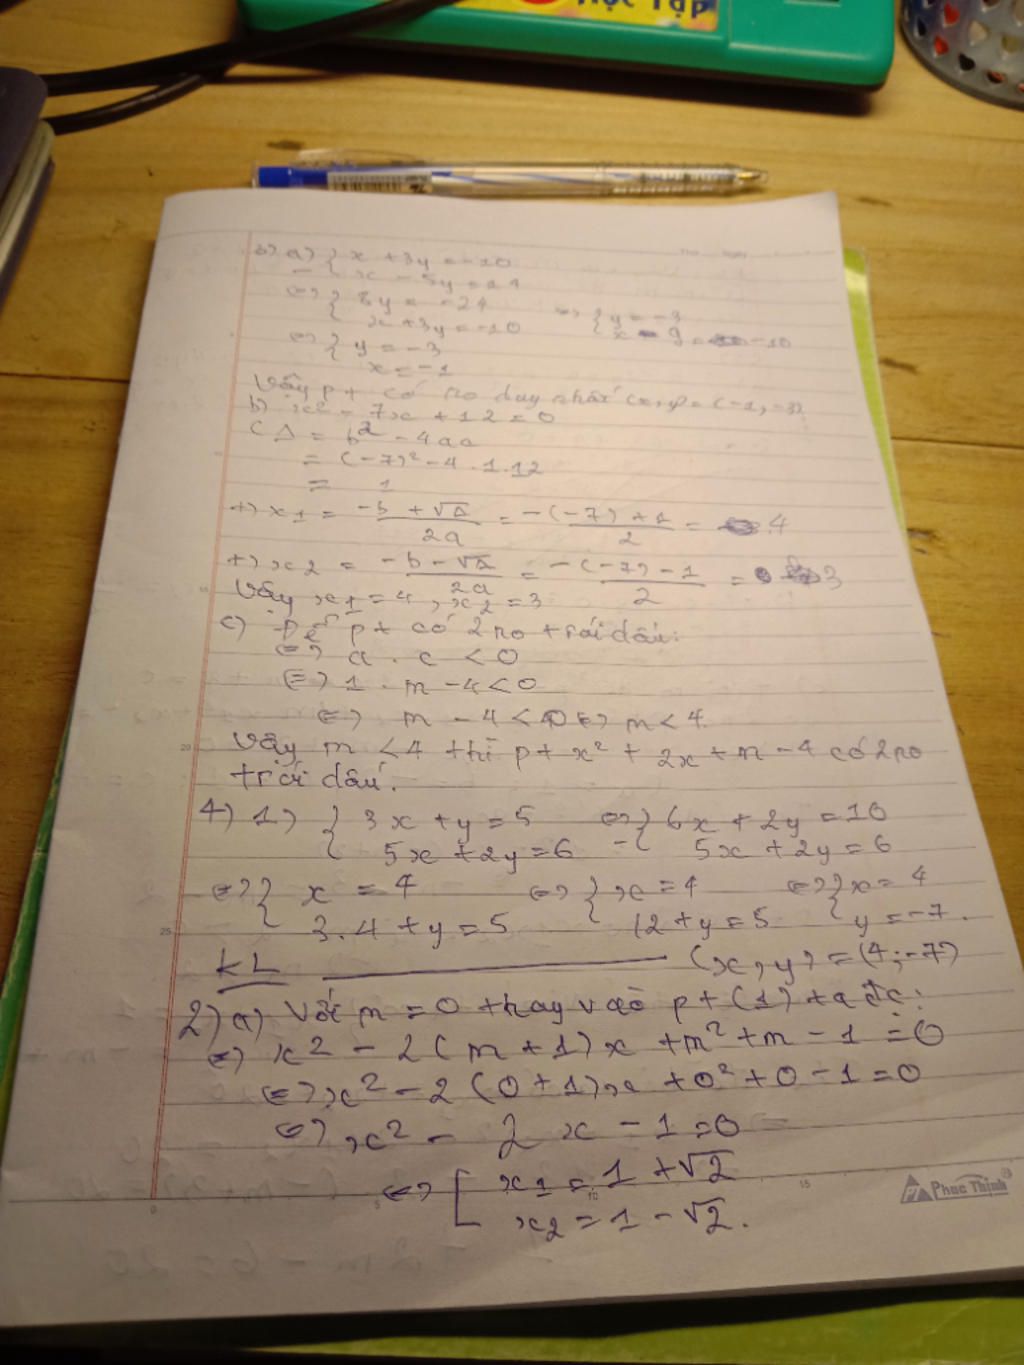 Học Tập
3) a) { x + 3y = -10
- { x - 5y = 14
<=> { 8y = -24
x + 3y = -10 <=> { y = -3
x - 9 = -10
<=> { y = -3
x = -1
Vậy pt có no duy nhất (x, y) = (-1, -3)
b) x² - 7x + 12 = 0
( Δ = b² - 4ac
= (-7)² - 4.1.12
= 1
+) x1 = -b + √Δ / 2a = -(-7) + 1 / 2 = 4
+) x2 = -b - √Δ / 2a = -(-7) - 1 / 2 = 3
Vậy x1 = 4, x2 = 3
c) Để pt có 2 no trái dấu:
<=> a . c < 0
<=> 1 . m - 4 < 0
<=> m - 4 < 0 <=> m < 4
Vậy m < 4 thì pt x² + 2x + m - 4 có 2 no
trái dấu.
4) 1) { 3x + y = 5 <=> { 6x + 2y = 10
5x + 2y = 6 - { 5x + 2y = 6
<=> { x = 4 <=> { x = 4 <=> { x = 4
3.4 + y = 5 12 + y = 5 y = -7.
KL (x, y) = (4; -7)
2) a) Với m = 0 thay vào pt (1) ta đc:
<=> x² - 2(m + 1)x + m² + m - 1 = 0
<=> x² - 2(0 + 1)x + 0² + 0 - 1 = 0
<=> x² - 2x - 1 = 0
<=> [ x1 = 1 + √2
x2 = 1 - √2.
Phúc Thịnh
0 5 10 15
20
25